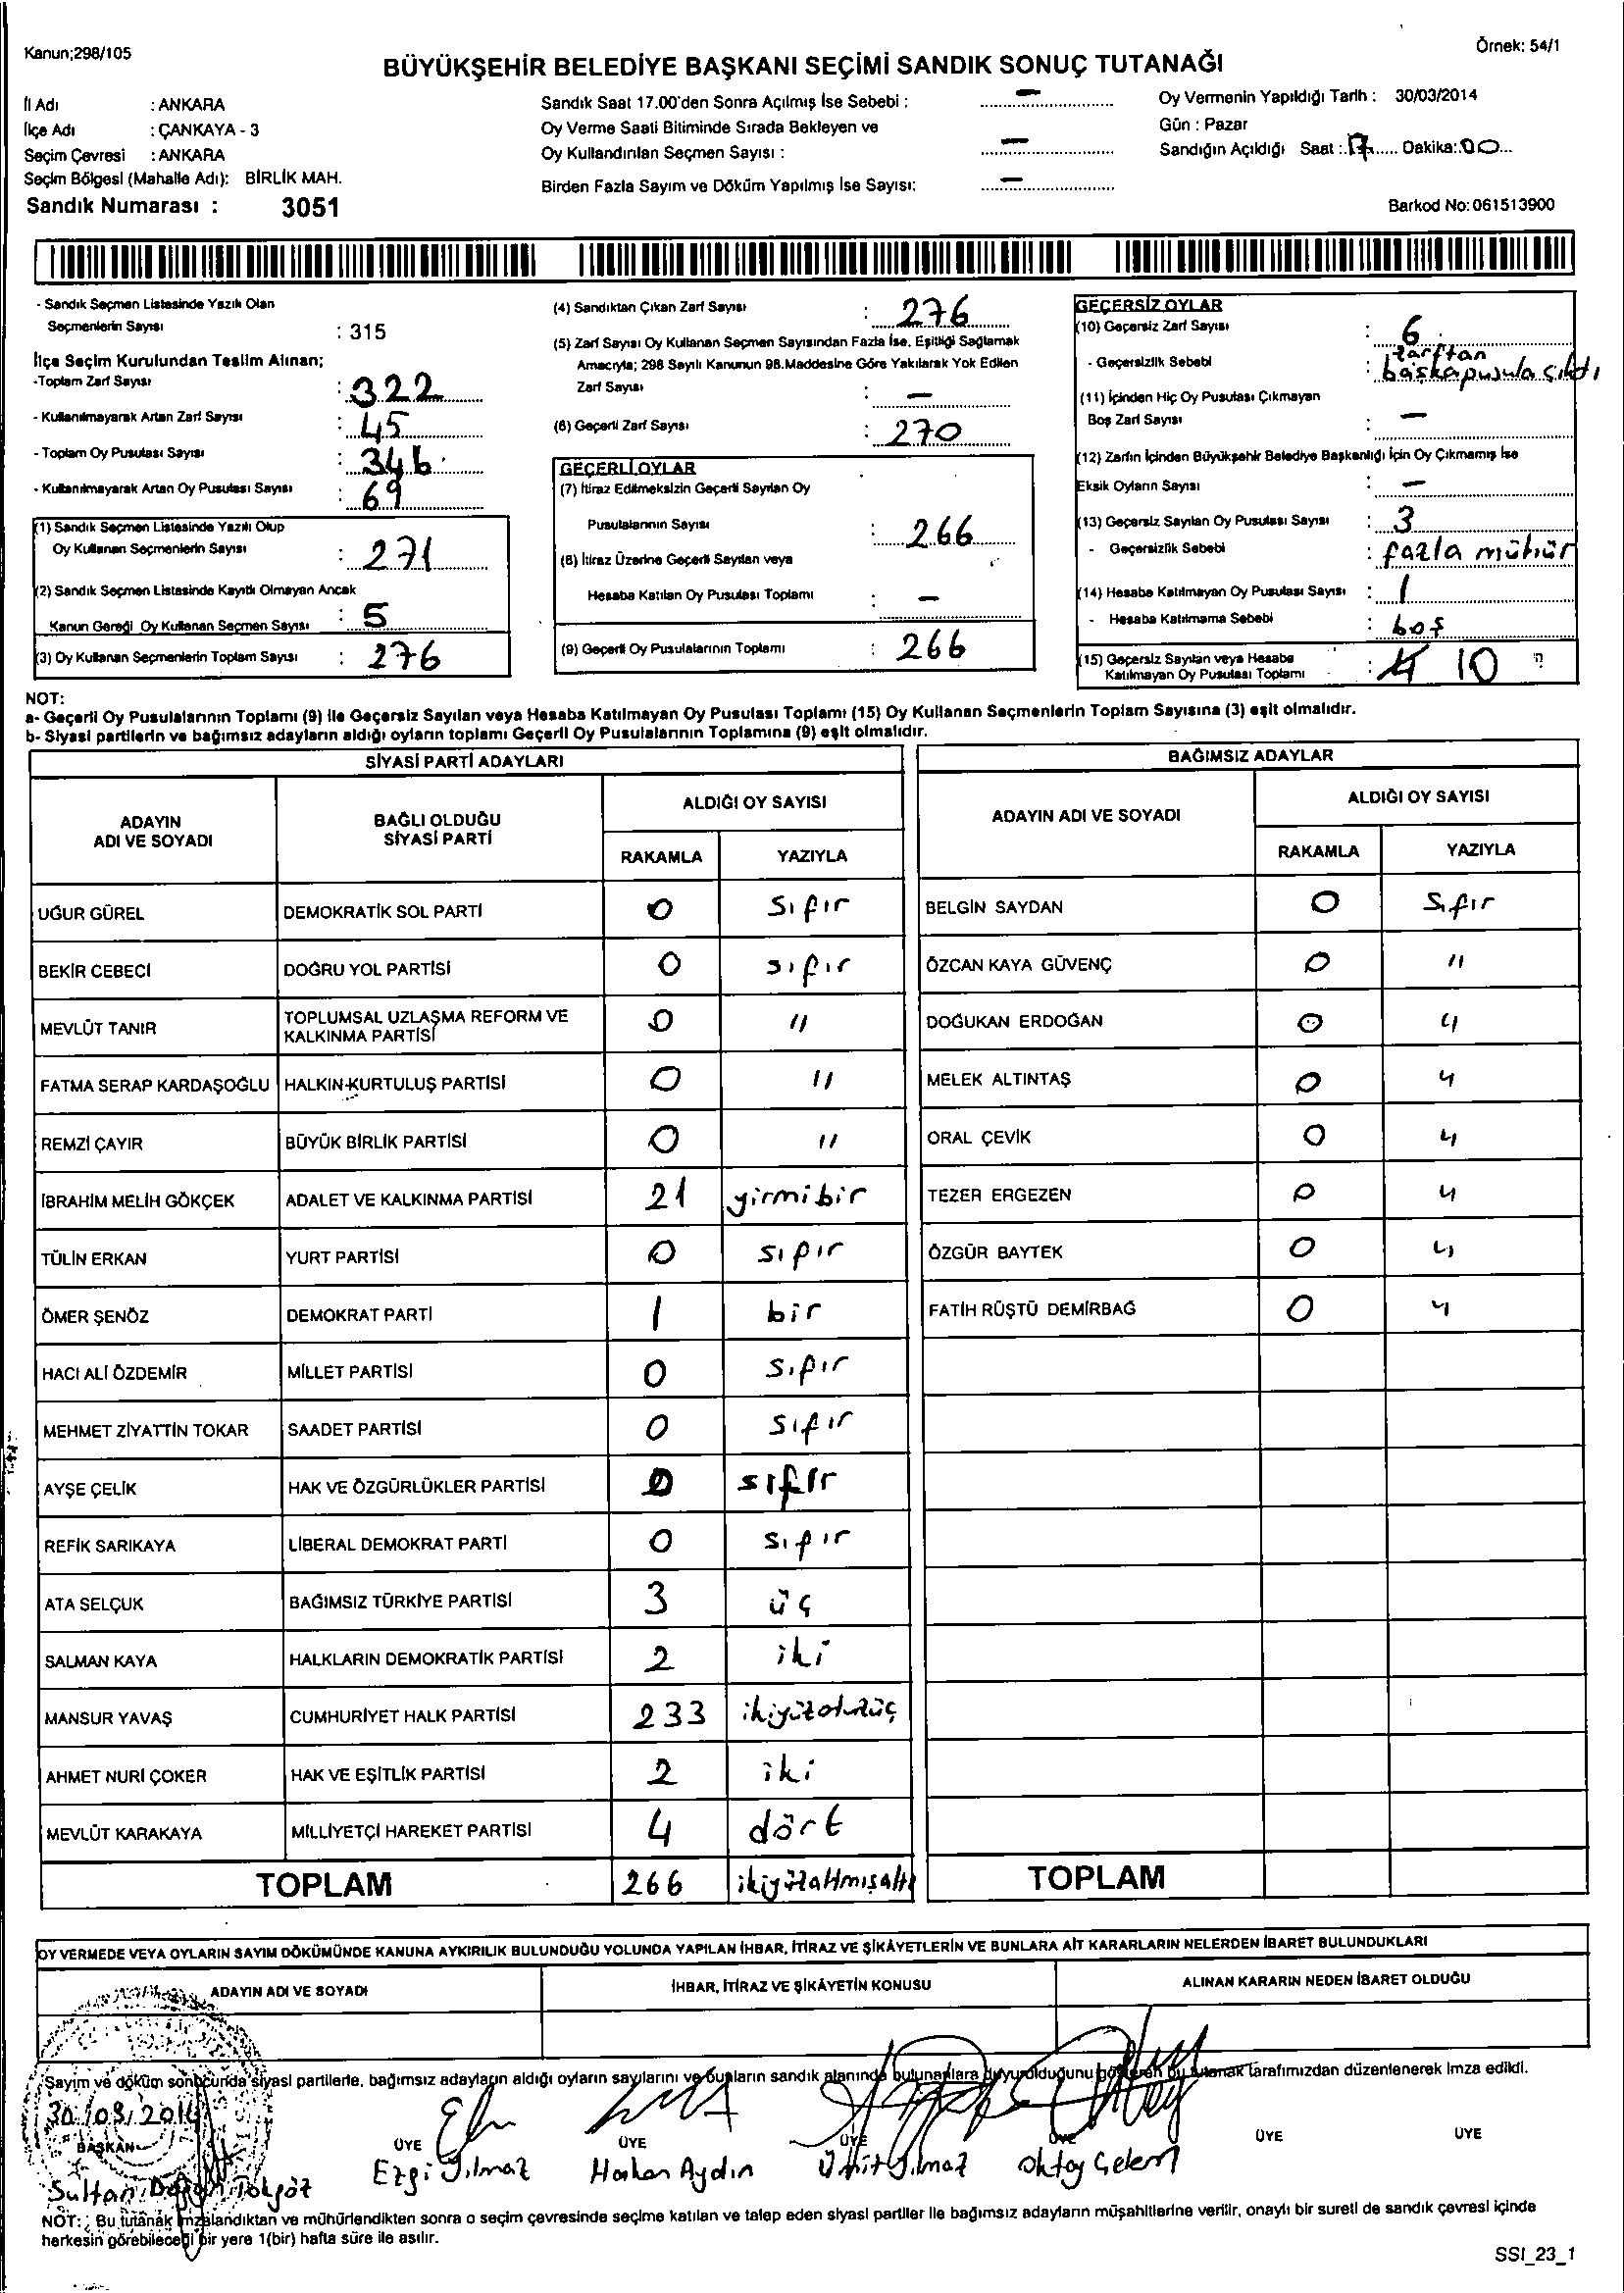 Kanun;298/105
Örnek: 54/1
BÜYÜKŞEHİR BELEDİYE BAŞKANI SEÇİMİ SANDIK SONUÇ TUTANAĞI
İl Adı : ANKARA
İlçe Adı : ÇANKAYA - 3
Seçim Çevresi : ANKARA
Seçim Bölgesi (Mahalle Adı): BİRLİK MAH.
Sandık Numarası : 3051
Sandık Saat 17.00'den Sonra Açılmış İse Sebebi : –
Oy Verme Saati Bitiminde Sırada Bekleyen ve
Oy Kullandırılan Seçmen Sayısı : –
Birden Fazla Sayım ve Döküm Yapılmış İse Sayısı: –
Oy Vermenin Yapıldığı Tarih : 30/03/2014
Gün : Pazar
Sandığın Açıldığı Saat : 17 Dakika: 00
Barkod No: 061513900
- Sandık Seçmen Listesinde Yazılı Olan
Seçmenlerin Sayısı : 315
İlçe Seçim Kurulundan Teslim Alınan;
-Toplam Zarf Sayısı : 322
- Kullanılmayarak Artan Zarf Sayısı : 45
- Toplam Oy Pusulası Sayısı : 346
- Kullanılmayarak Artan Oy Pusulası Sayısı : 69
(1) Sandık Seçmen Listesinde Yazılı Olup
Oy Kullanan Seçmenlerin Sayısı : 271
(2) Sandık Seçmen Listesinde Kayıtlı Olmayan Ancak
Kanun Gereği Oy Kullanan Seçmen Sayısı : 5
(3) Oy Kullanan Seçmenlerin Toplam Sayısı : 276
(4) Sandıktan Çıkan Zarf Sayısı : 276
(5) Zarf Sayısı Oy Kullanan Seçmen Sayısından Fazla İse, Eşitliği Sağlamak
Amacıyla; 298 Sayılı Kanunun 98.Maddesine Göre Yakılarak Yok Edilen
Zarf Sayısı : –
(6) Geçerli Zarf Sayısı : 270
GEÇERLİ OYLAR
(7) İtiraz Edilmeksizin Geçerli Sayılan Oy
Pusulalarının Sayısı : 266
(8) İtiraz Üzerine Geçerli Sayılan veya
Hesaba Katılan Oy Pusulası Toplamı : –
(9) Geçerli Oy Pusulalarının Toplamı : 266
GEÇERSİZ OYLAR
(10) Geçersiz Zarf Sayısı : 6
- Geçersizlik Sebebi : zarftan
başka pusula çıktı
(11) İçinden Hiç Oy Pusulası Çıkmayan
Boş Zarf Sayısı : –
(12) Zarfın İçinden Büyükşehir Belediye Başkanlığı İçin Oy Çıkmamış İse
Eksik Oyların Sayısı : –
(13) Geçersiz Sayılan Oy Pusulası Sayısı : 3
- Geçersizlik Sebebi : fazla mühür
(14) Hesaba Katılmayan Oy Pusulası Sayısı : 1
- Hesaba Katılmama Sebebi : boş
(15) Geçersiz Sayılan veya Hesaba
Katılmayan Oy Pusulası Toplamı : 4 10
NOT:
a- Geçerli Oy Pusulalarının Toplamı (9) ile Geçersiz Sayılan veya Hesaba Katılmayan Oy Pusulası Toplamı (15) Oy Kullanan Seçmenlerin Toplam Sayısına (3) eşit olmalıdır.
b- Siyasi partilerin ve bağımsız adayların aldığı oyların toplamı Geçerli Oy Pusulalarının Toplamına (9) eşit olmalıdır.
SİYASİ PARTİ ADAYLARI
ADAYIN ADI VE SOYADI BAĞLI OLDUĞU SİYASİ PARTİ ALDIĞI OY SAYISI
RAKAMLA YAZIYLA
UĞUR GÜREL DEMOKRATİK SOL PARTİ 0 sıfır
BEKİR CEBECİ DOĞRU YOL PARTİSİ 0 sıfır
MEVLÜT TANIR TOPLUMSAL UZLAŞMA REFORM VE KALKINMA PARTİSİ 0 "
FATMA SERAP KARDAŞOĞLU HALKIN KURTULUŞ PARTİSİ 0 "
REMZİ ÇAYIR BÜYÜK BİRLİK PARTİSİ 0 "
İBRAHİM MELİH GÖKÇEK ADALET VE KALKINMA PARTİSİ 21 yirmibir
TÜLİN ERKAN YURT PARTİSİ 0 sıfır
ÖMER ŞENÖZ DEMOKRAT PARTİ 1 bir
HACI ALİ ÖZDEMİR MİLLET PARTİSİ 0 sıfır
MEHMET ZİYATTİN TOKAR SAADET PARTİSİ 0 sıfır
AYŞE ÇELİK HAK VE ÖZGÜRLÜKLER PARTİSİ 0 sıfır
REFİK SARIKAYA LİBERAL DEMOKRAT PARTİ 0 sıfır
ATA SELÇUK BAĞIMSIZ TÜRKİYE PARTİSİ 3 üç
SALMAN KAYA HALKLARIN DEMOKRATİK PARTİSİ 2 iki
MANSUR YAVAŞ CUMHURİYET HALK PARTİSİ 233 ikiyüzotuzüç
AHMET NURİ ÇOKER HAK VE EŞİTLİK PARTİSİ 2 iki
MEVLÜT KARAKAYA MİLLİYETÇİ HAREKET PARTİSİ 4 dört
TOPLAM 266 ikiyüzaltmışaltı
BAĞIMSIZ ADAYLAR
ADAYIN ADI VE SOYADI ALDIĞI OY SAYISI
RAKAMLA YAZIYLA
BELGİN SAYDAN 0 Sıfır
ÖZCAN KAYA GÜVENÇ 0 "
DOĞUKAN ERDOĞAN 0 "
MELEK ALTINTAŞ 0 "
ORAL ÇEVİK 0 "
TEZER ERGEZEN 0 "
ÖZGÜR BAYTEK 0 "
FATİH RÜŞTÜ DEMİRBAĞ 0 "
TOPLAM
OY VERMEDE VEYA OYLARIN SAYIM DÖKÜMÜNDE KANUNA AYKIRILIK BULUNDUĞU YOLUNDA YAPILAN İHBAR, İTİRAZ VE ŞİKÂYETLERİN VE BUNLARA AİT KARARLARIN NELERDEN İBARET BULUNDUKLARI
ADAYIN ADI VE SOYADI İHBAR, İTİRAZ VE ŞİKÂYETİN KONUSU ALINAN KARARIN NEDEN İBARET OLDUĞU
Sayım ve döküm sonucunda siyasi partilerle, bağımsız adayların aldığı oyların sayılarını ve bunların sandık alanında bulunanlara duyurulduğunu gösteren bu tutanak tarafımızdan düzenlenerek imza edildi.
30/03/2014
BAŞKAN ÜYE ÜYE ÜYE ÜYE ÜYE ÜYE
Sultan Ezgi Yılmaz Hakan Aydın Ümit Yılmaz Oktay
NOT: Bu tutanak imzalandıktan ve mühürlendikten sonra o seçim çevresinde seçime katılan ve talep eden siyasi partiler ile bağımsız adayların müşahitlerine verilir, onaylı bir sureti de sandık çevresi içinde
herkesin görebileceği bir yere 1(bir) hafta süre ile asılır.
SSI_23_1